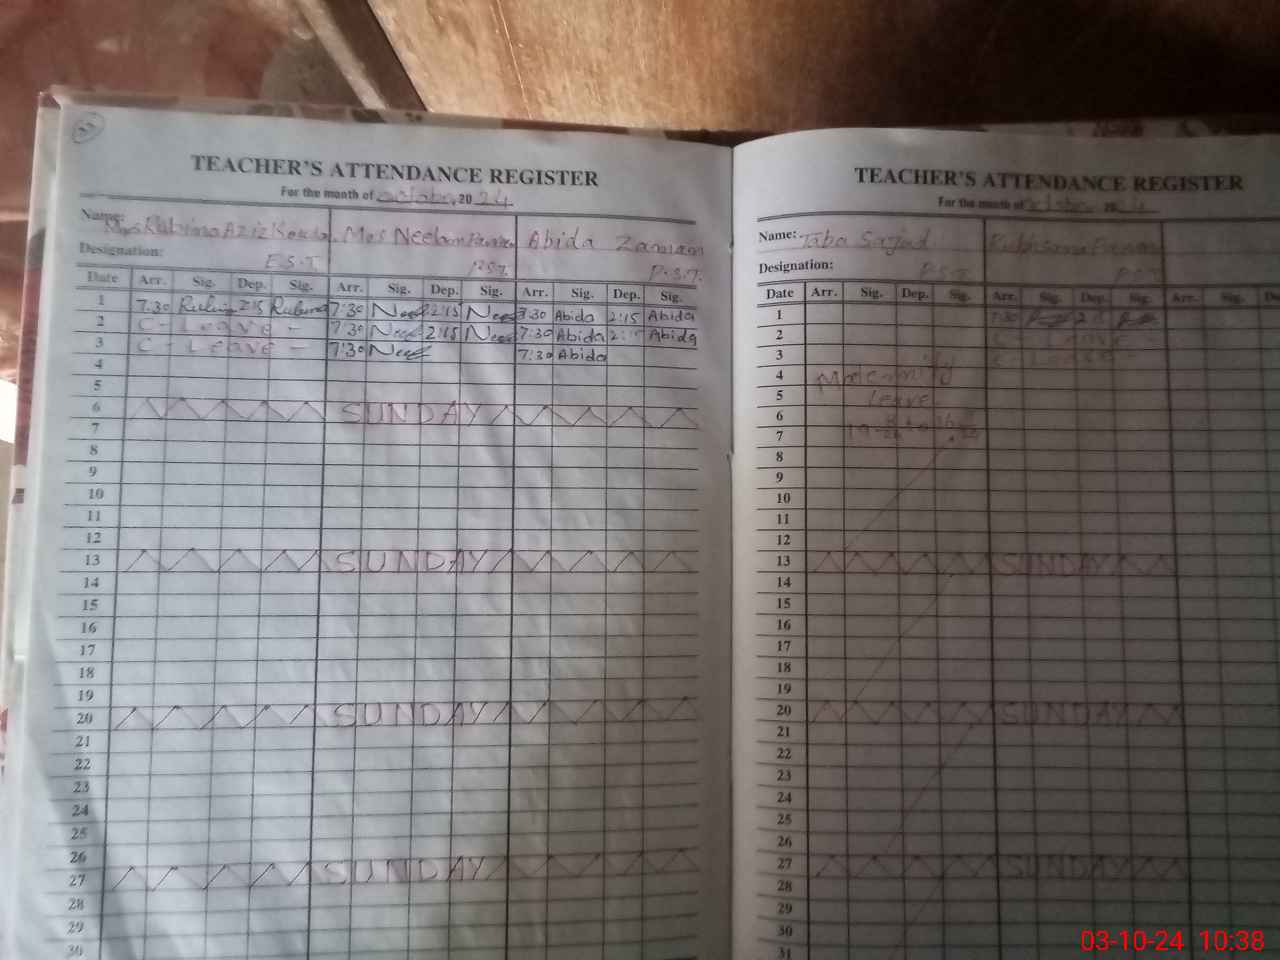 37
TEACHER'S ATTENDANCE REGISTER
For the month of October 2024
Name: Mrs Rubina Aziz Mrs Neelam Abida Zaman
Designation: E.S.T. P.S.T. P.S.T.
Date Arr. Sig. Dep. Sig. Arr. Sig. Dep. Sig. Arr. Sig. Dep. Sig.
1 7.30 Rubina 2:15 Rubina 7:30 Nee 2:15 Nee 7:30 Abida 2:15 Abida
2 C - Leave - 7:30 Nee 2:15 Nee 7:30 Abida 2:15 Abida
3 C - Leave - 7:30 Nee 7:30 Abida
4
5
6 SUNDAY
7
8
9
10
11
12
13 SUNDAY
14
15
16
17
18
19
20 SUNDAY
21
22
23
24
25
26
27 SUNDAY
28
29
30
TEACHER'S ATTENDANCE REGISTER
For the month of October 2024
Name: Taba Sajjad
Designation: P.S.T. P.S.T.
Date Arr. Sig. Dep. Sig. Arr. Sig. Dep. Sig. Arr. Sig. De
1 7:30
2 C - Leave
3
4 Maternity
5 Leave
6
7
8
9
10
11
12
13 SUNDAY
14
15
16
17
18
19
20 SUNDAY
21
22
23
24
25
26
27 SUNDAY
28
29
30
31
03-10-24 10:38